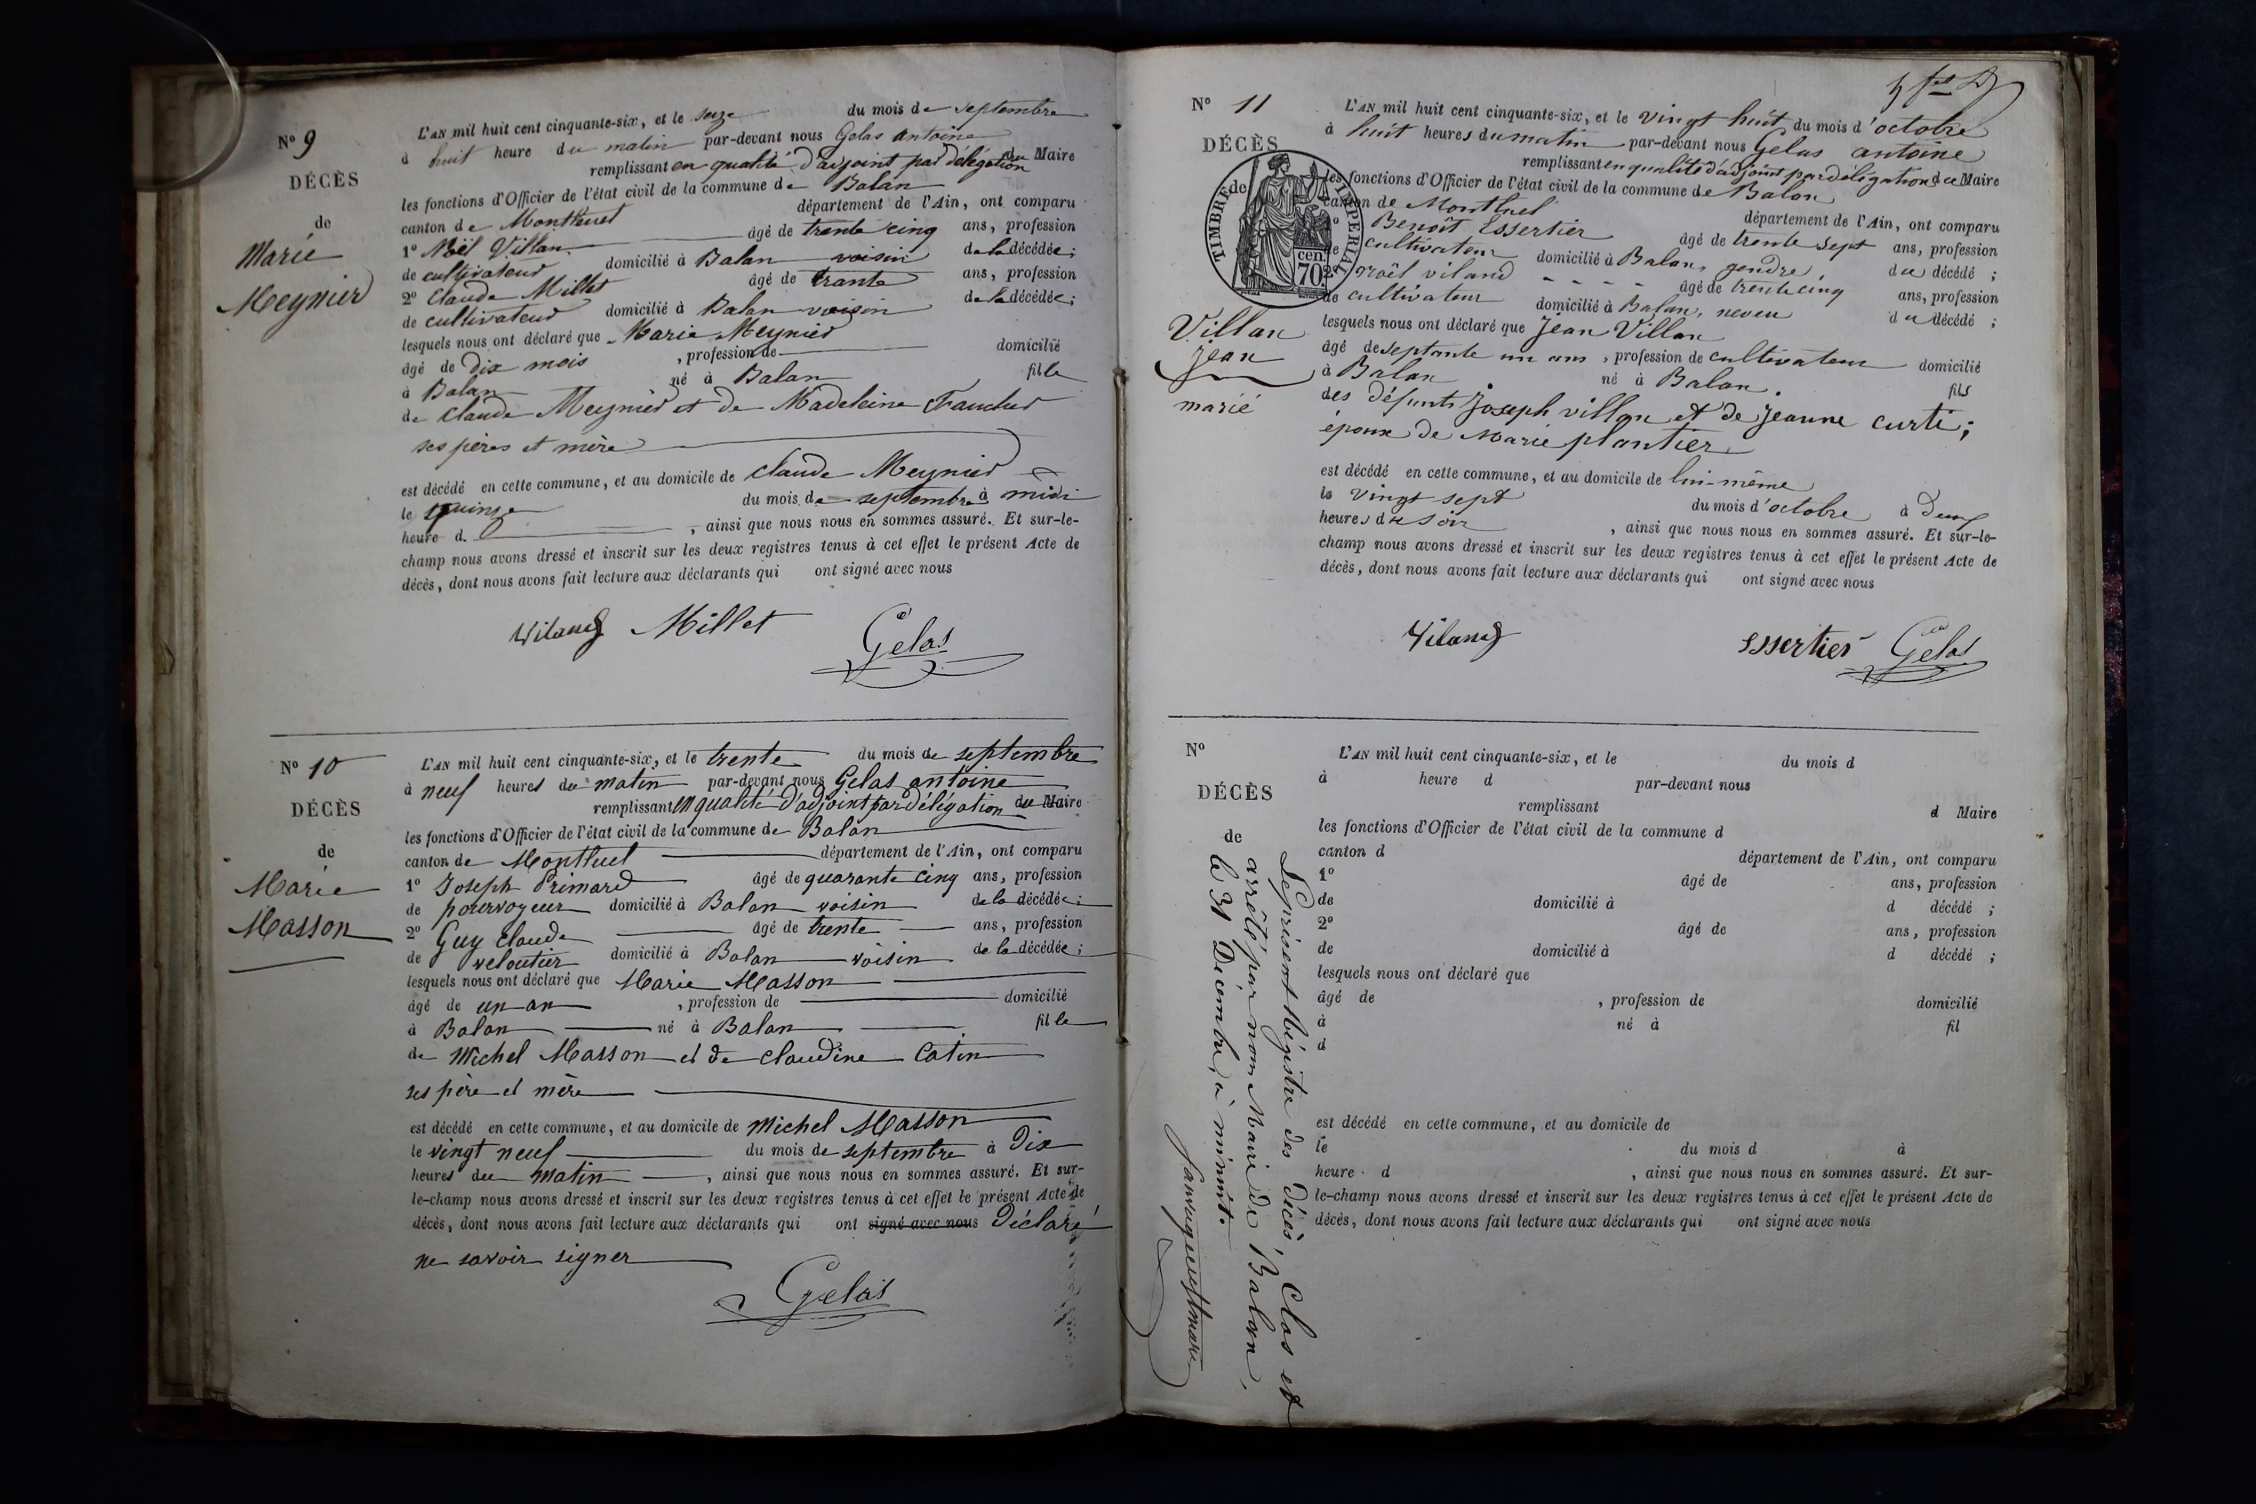 N° 9
DÉCÈS
de
Marie
Meynier
L'AN mil huit cent cinquante-six, et le seize du mois de septembre
à huit heure du matin par-devant nous Gelas antoine
remplissant en qualité d'adjoint par délégation du Maire
les fonctions d'Officier de l'état civil de la commune de Balan
canton de Montluel département de l'Ain, ont comparu
1° Noël Villan âgé de trente cinq ans, profession
de cultivateur domicilié à Balan voisin de la décédée;
2° Claude Millet âgé de trante ans, profession
de cultivateur domicilié à Balan voisin de la décédée;
lesquels nous ont déclaré que Marie Meynier
âgé de dix mois, profession de domicilié
à Balan né à Balan fille
de Claude Meynier et de Madeleine Faucher
ses pères et mère
est décédé en cette commune, et au domicile de Claude Meynier
le quinze du mois de septembre à midi
heure d , ainsi que nous nous en sommes assuré. Et sur-le-
champ nous avons dressé et inscrit sur les deux registres tenus à cet effet le présent Acte de
décès, dont nous avons fait lecture aux déclarants qui ont signé avec nous
Viland Millet Gelas
N° 10
DÉCÈS
de
Marie
Masson
L'AN mil huit cent cinquante-six, et le trente du mois de septembre
à neuf heures du matin par-devant nous Gelas antoine
remplissant en qualité d'adjoint par délégation du Maire
les fonctions d'Officier de l'état civil de la commune de Balan
canton de Montluel département de l'Ain, ont comparu
1° Joseph Primard âgé de quarante cinq ans, profession
de pourvoyeur domicilié à Balan voisin de la décédée;
2° Guy claude âgé de trente ans, profession
de veloutier domicilié à Balan voisin de la décédée;
lesquels nous ont déclaré que Marie Masson
âgé de un an , profession de domicilié
à Balan né à Balan fille
de Michel Masson et de claudine Catin
ses père et mère
est décédé en cette commune, et au domicile de Michel Masson
le vingt neuf du mois de septembre à Dix
heures du matin , ainsi que nous nous en sommes assuré. Et sur-
le-champ nous avons dressé et inscrit sur les deux registres tenus à cet effet le présent Acte de
décès, dont nous avons fait lecture aux déclarants qui ont signé avec nous Déclaré
ne savoir signer
Gelas
N° 11
DÉCÈS
TIMBRE IMPERIAL
de
70 cen.
Villan
Jean
marié
L'AN mil huit cent cinquante-six, et le vingt huit du mois d'octobre
à huit heures du matin par-devant nous Gelas antoine
remplissant en qualité d'adjoint par délégation du Maire
les fonctions d'Officier de l'état civil de la commune de Balan
canton de Montluel département de l'Ain, ont comparu
1° Benoît Essertier âgé de trente sept ans, profession
de cultivateur domicilié à Balan, gendre du décédé ;
2° Noël viland âgé de trente cinq ans, profession
de cultivateur domicilié à Balan, neveu du décédé ;
lesquels nous ont déclaré que Jean Villan
âgé de septante un ans , profession de cultivateur domicilié
à Balan né à Balan. fils
des défunts Joseph villan et de Jeanne curti;
époux de Marie plantier
est décédé en cette commune, et au domicile de lui-même
le vingt sept du mois d'octobre à deux
heures du soir , ainsi que nous nous en sommes assuré. Et sur-le-
champ nous avons dressé et inscrit sur les deux registres tenus à cet effet le présent Acte de
décès, dont nous avons fait lecture aux déclarants qui ont signé avec nous
Viland Essertier Gelas
N°
DÉCÈS
de
L'AN mil huit cent cinquante-six, et le du mois d
à heure d par-devant nous
remplissant d Maire
les fonctions d'Officier de l'état civil de la commune d
canton d département de l'Ain, ont comparu
1° âgé de ans, profession
de domicilié à d décédé ;
2° âgé de ans, profession
de domicilié à d décédé ;
lesquels nous ont déclaré que
âgé de , profession de domicilié
à né à fil
d
est décédé en cette commune, et au domicile de
le du mois d à
heure d , ainsi que nous nous en sommes assuré. Et sur-
le-champ nous avons dressé et inscrit sur les deux registres tenus à cet effet le présent Acte de
décès, dont nous avons fait lecture aux déclarants qui ont signé avec nous
Le présent Régistre des décès, Clos et
arrêté par nous Maire de Balan,
le 31 Décembre, à minuit.